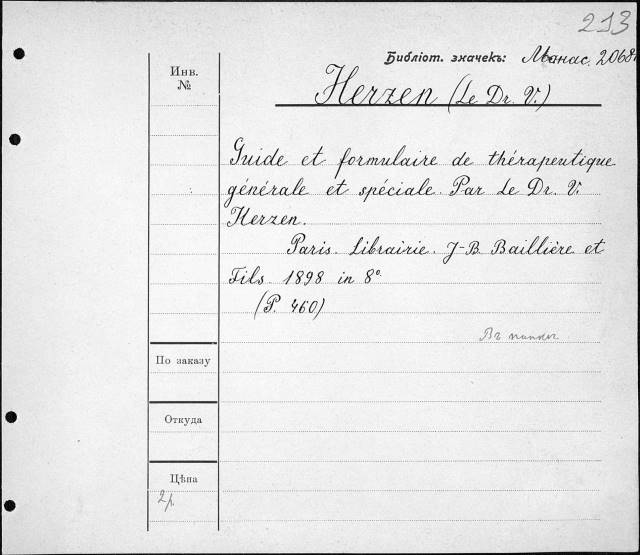 213
Библіот. значекъ: Манас. 2068
Инв. №
Herzen (Le Dr. V.)
Guide et formulaire de thérapeutique
générale et spéciale. Par Le Dr. V.
Herzen.
Paris. Librairie. J-B. Baillière et
Fils. 1898 in 8º
(P. 460)
Въ папкѣ
По заказу
Откуда
Цѣна
2 р.